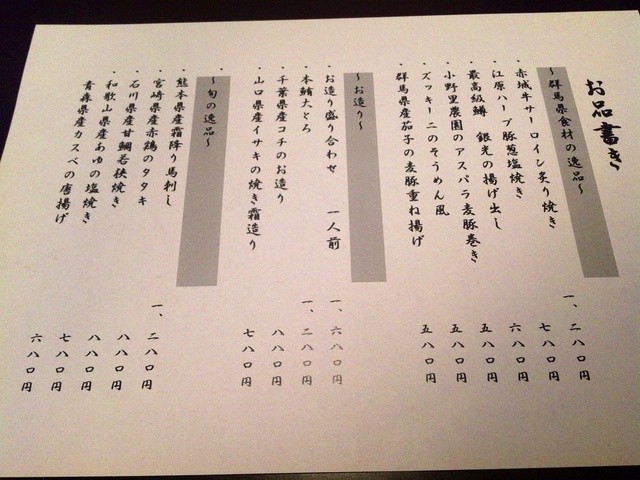 お品書き
～群馬県食材の逸品～
・赤城牛サーロイン炙り焼き 一、二八〇円
・江原ハーブ豚葱塩焼き 七八〇円
・最高級鱒 銀光の揚げ出し 六八〇円
・小野里農園のアスパラ麦豚巻き 五八〇円
・ズッキーニのそうめん風 五八〇円
・群馬県産茄子の麦豚重ね揚げ 五八〇円
～お造り～
・お造り盛り合わせ 一人前 一、六八〇円
・本鮪大とろ 一、二八〇円
・千葉県産コチのお造り 八八〇円
・山口県産イサキの焼き霜造り 七八〇円
～旬の逸品～
・熊本県産霜降り馬刺し 一、二八〇円
・宮崎県産赤鶏のタタキ 八八〇円
・石川県産甘鯛若狭焼き 八八〇円
・和歌山県産あゆの塩焼き 七八〇円
青森県産カスベの唐揚げ 六八〇円